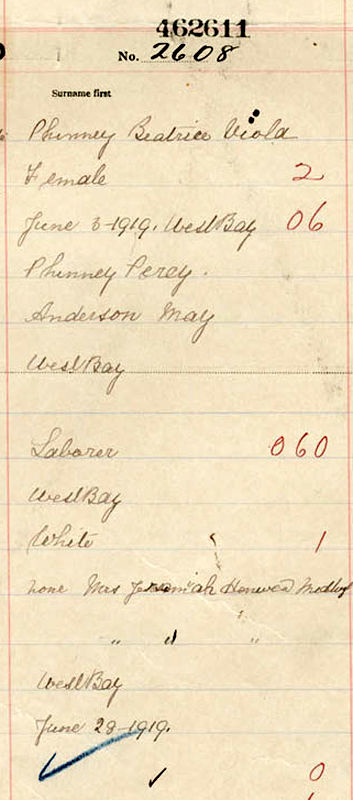 462611
No. 2608
Surname first
Phinney Beatrice Viola
Female 2
June 3-1919. West Bay 06
Phinney Percy.
Anderson May
West Bay
Laborer 060
West Bay
White 1
none Mrs Jeremiah
" " "
West Bay
June 28-1919.
✓ 0